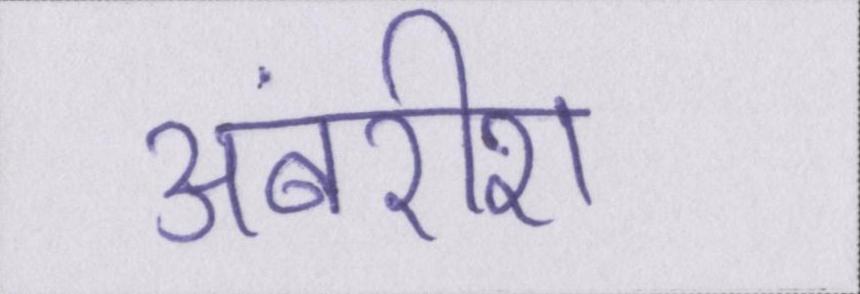 अंबरीश